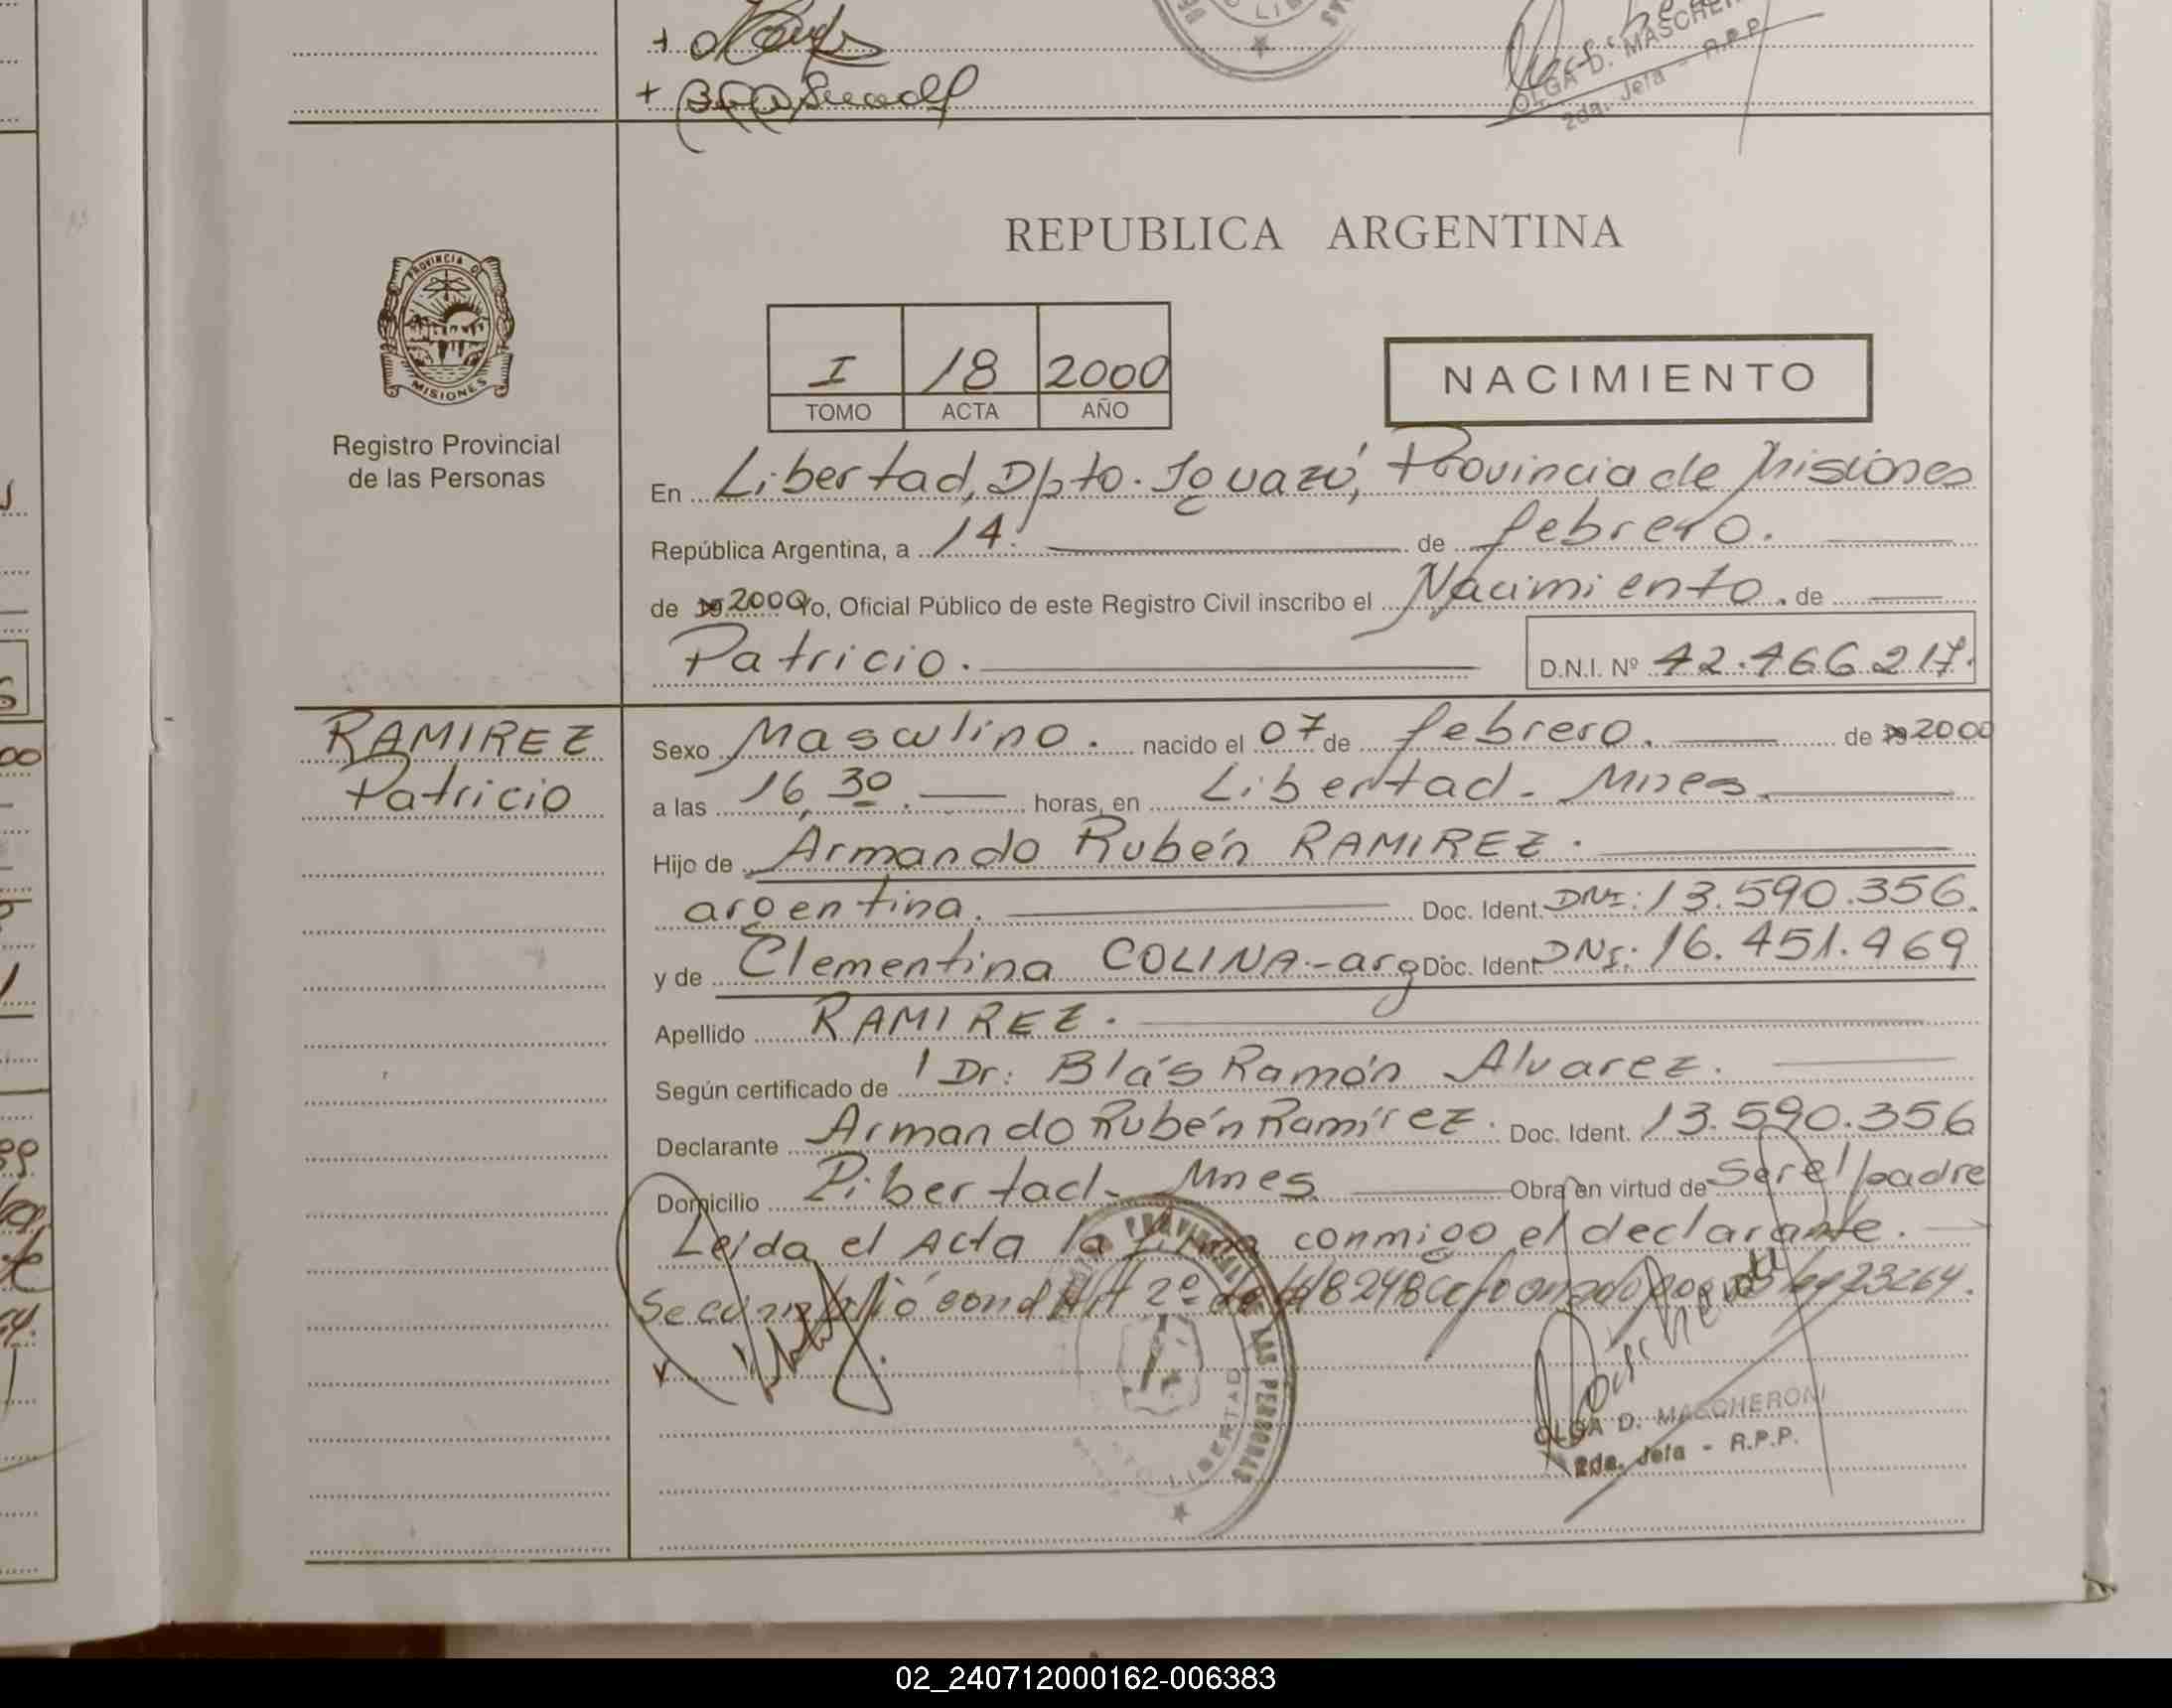 OLGA D. MASCHERONI
2da. Jefa - R.P.P.
REPUBLICA ARGENTINA
PROVINCIA DE
MISIONES
I 18 2000
TOMO ACTA AÑO
NACIMIENTO
Registro Provincial
de las Personas
En Libertad, Dpto. Iguazú, Provincia de Misiones
República Argentina, a 14. de febrero.
de 19 2000 Yo, Oficial Público de este Registro Civil inscribo el Nacimiento. de
Patricio. D.N.I. Nº 42.466.217.
RAMIREZ
Patricio
Sexo Masculino. nacido el 07 de febrero. de 19 2000
a las 16,30. horas, en Libertad - Mnes.
Hijo de Armando Rubén RAMIREZ.
argentina. Doc. Ident. DNI: 13.590.356.
y de Clementina COLINA.-arg Doc. Ident. DNI: 16.451.469
Apellido RAMIREZ.
Según certificado de Dr: Blás Ramón Alvarez.
Declarante Armando Rubén Ramírez. Doc. Ident. 13.590.356
Domicilio Libertad - Mnes Obra en virtud de ser el padre
Leida el Acta la firma conmigo el declarante.
Se cumplió con el Art 2º de 18248 23264.
LAS PERSONAS
LIBERTAD
OLGA D. MASCHERONI
2da. Jefa - R.P.P.
02_240712000162-006383